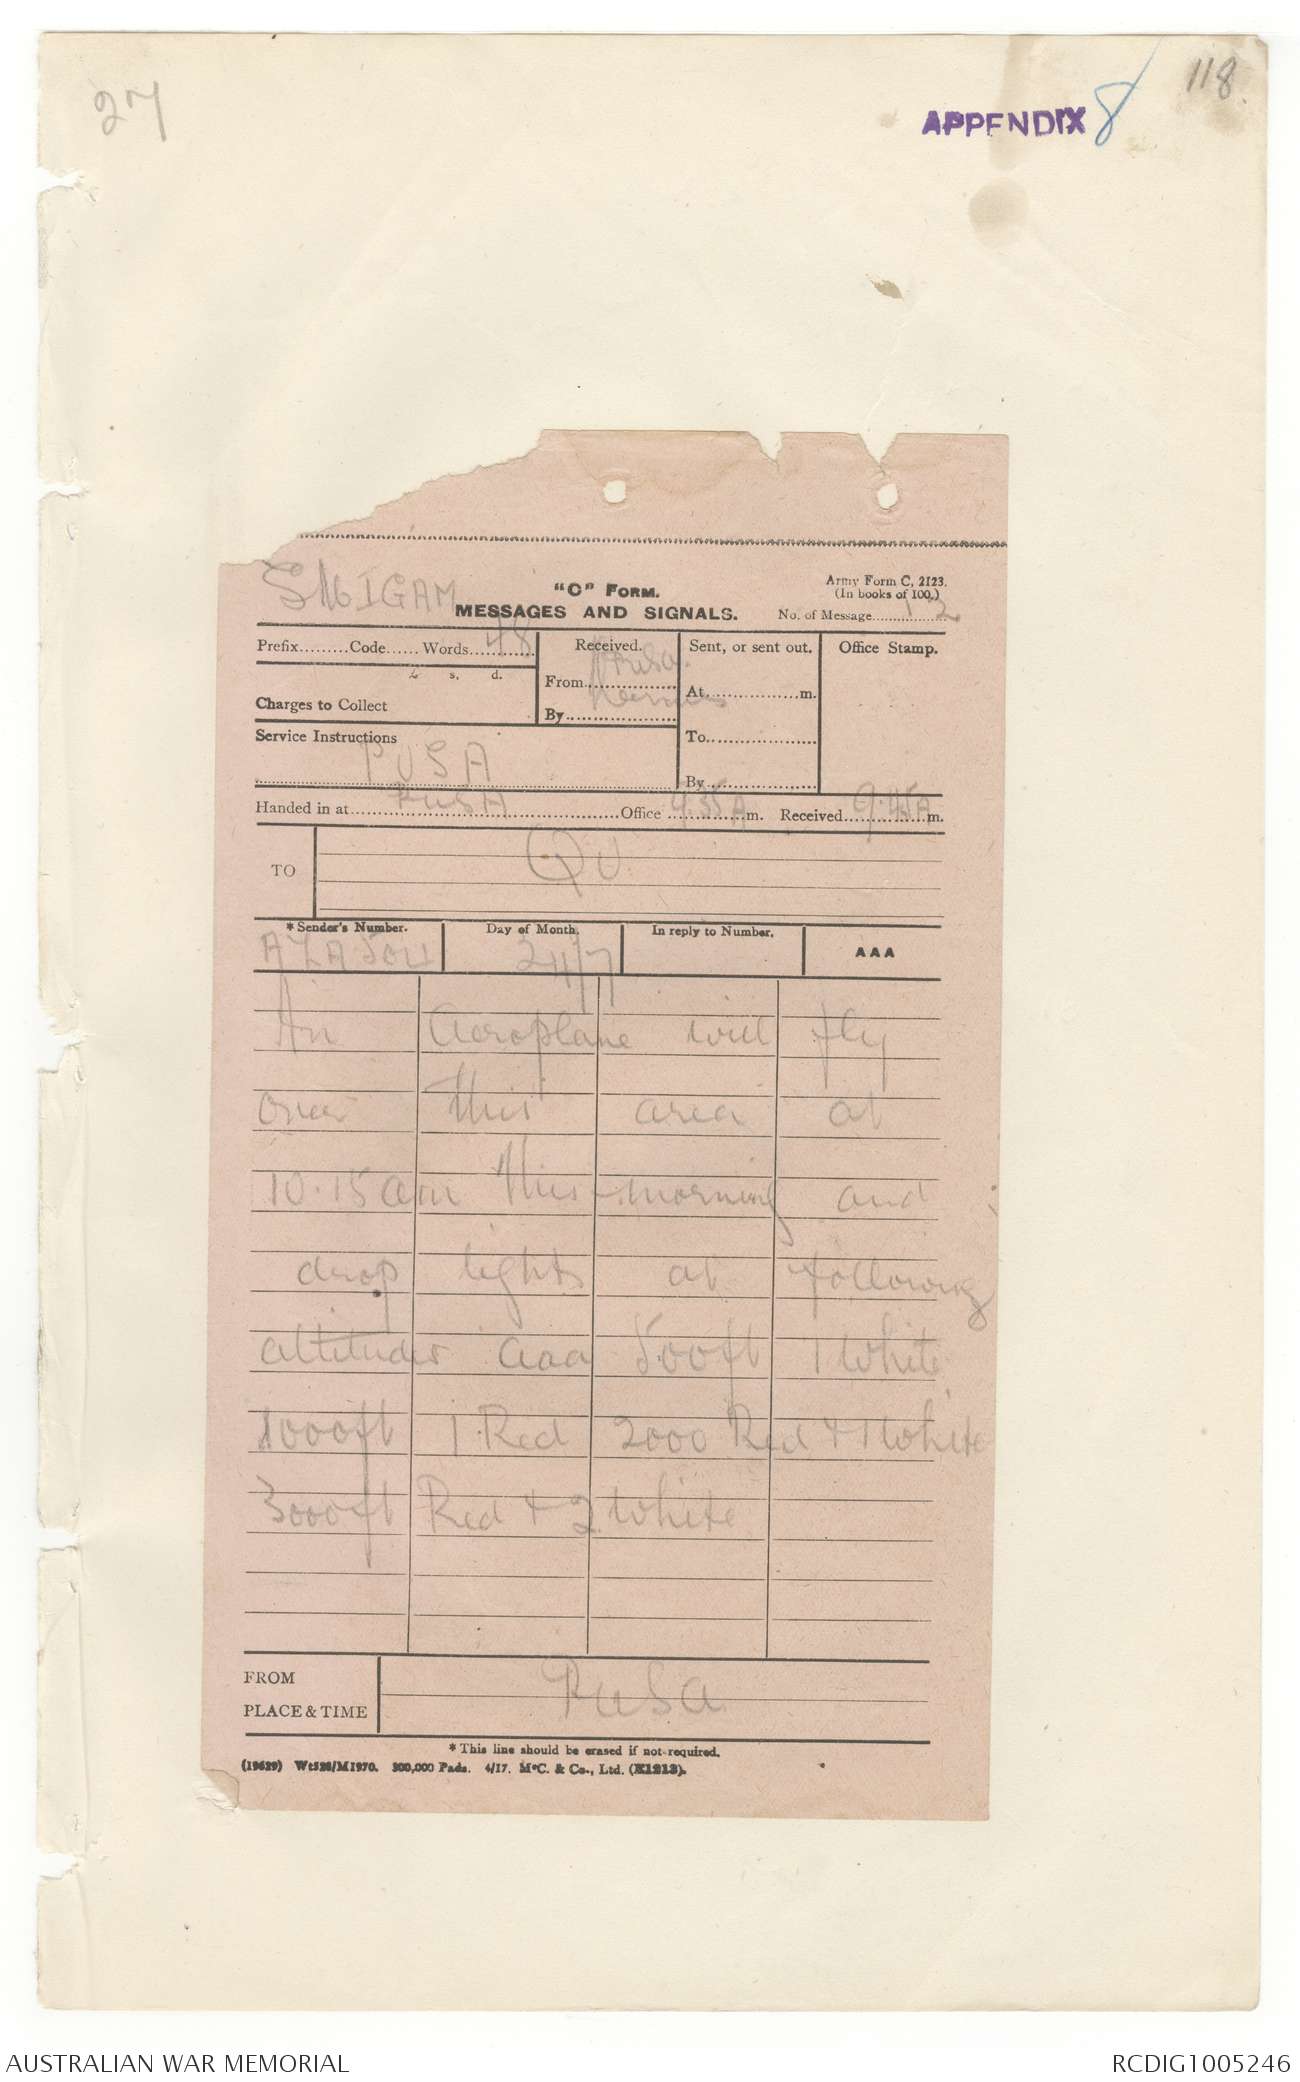 27
118
APPENDIX 8
"C" FORM.
MESSAGES AND SIGNALS.
Army Form C, 2123.
(In books of 100.)
No. of Message 12
Prefix.........Code......Words 48
£ s. d.
Charges to Collect
Received.
From Pusa
By
Sent, or sent out.
At...............m.
To
By
Office Stamp.
Service Instructions
PUSA
Handed in at PUSA Office 9.35A m. Received 9.45A m.
TO QU
*Sender's Number. Day of Month. In reply to Number. AAA
24/7
An Aeroplane will fly
over this area at
10.15 am this morning and
drop lights at following
altitudes aaa 500ft 1 White
1000ft 1 Red 2000 Red + 1 White
3000ft Red + 2 White
FROM
PLACE & TIME
PUSA
*This line should be erased if not required.
(19629) Wt528/M1970. 300,000 Pads. 4/17. McC. & Co., Ltd. (E1213).
AUSTRALIAN WAR MEMORIAL
RCDIG1005246